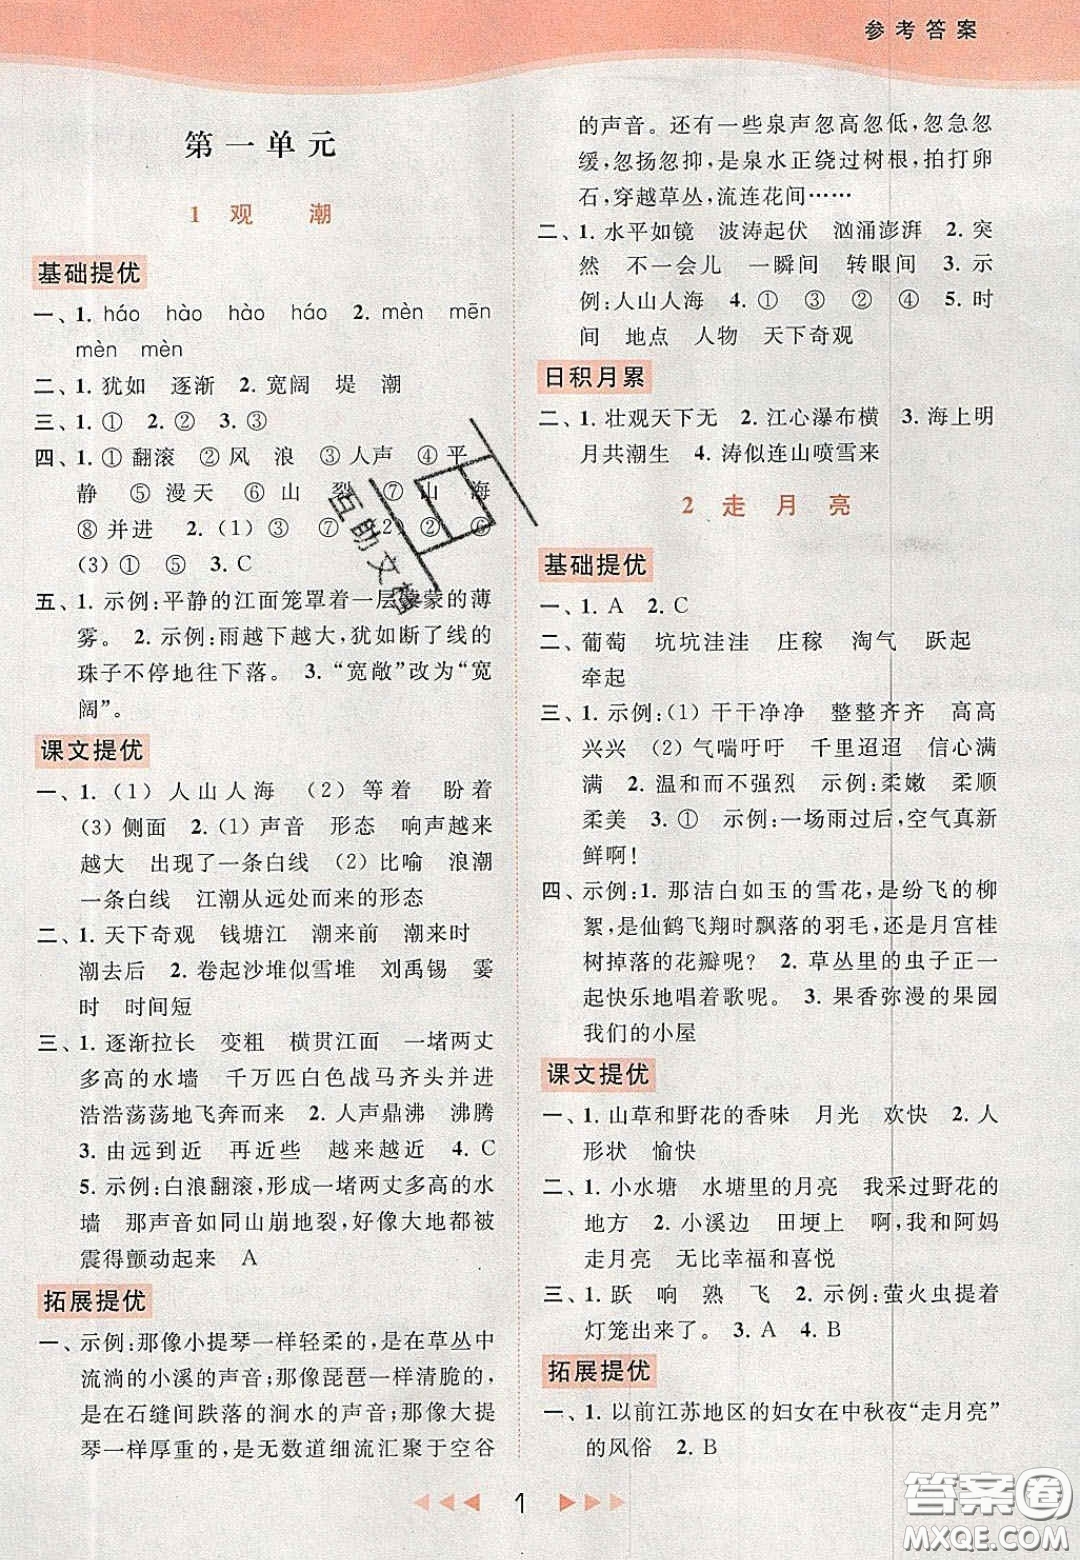 参考答案
第一单元
1 观 潮
基础提优
一、1. háo hào hào háo 2. mèn mēn
mèn mèn
二、1. 犹如 逐渐 2. 宽阔 堤 潮
三、1. ① 2. ② 3. ③
四、1. ① 翻滚 ② 风 浪 ③ 人声 ④ 平
静 ⑤ 漫天 ⑥ 山 裂 ⑦ 山 海
⑧ 并进 2. (1) ③ ⑦ (2) ②
(3) ① ⑤ 3. C
五、1. 示例:平静的江面笼罩着一层蒙蒙的薄
雾。 2. 示例:雨越下越大,犹如断了线的
珠子不停地往下落。 3. “宽敞”改为“宽
阔”。
课文提优
一、1. (1) 人山人海 (2) 等着 盼着
(3) 侧面 2. (1) 声音 形态 响声越来
越大 出现了一条白线 (2) 比喻 浪潮
一条白线 江潮从远处而来的形态
二、1. 天下奇观 钱塘江 潮来前 潮来时
潮去后 2. 卷起沙堆似雪堆 刘禹锡 霎
时 时间短
三、1. 逐渐拉长 变粗 横贯江面 一堵两丈
多高的水墙 千万匹白色战马齐头并进
浩浩荡荡地飞奔而来 2. 人声鼎沸 沸腾
3. 由远到近 再近些 越来越近 4. C
5. 示例:白浪翻滚,形成一堵两丈多高的水
墙 那声音如同山崩地裂,好像大地都被
震得颤动起来 A
拓展提优
一、示例:那像小提琴一样轻柔的,是在草丛中
流淌的小溪的声音;那像琵琶一样清脆的,
是在石缝间跌落的涧水的声音;那像大提
琴一样厚重的,是无数道细流汇聚于空谷
的声音。还有一些泉声忽高忽低,忽急忽
缓,忽扬忽抑,是泉水正绕过树根,拍打卵
石,穿越草丛,流连花间……
二、1. 水平如镜 波涛起伏 汹涌澎湃 2. 突
然 不一会儿 一瞬间 转眼间 3. 示
例:人山人海 4. ① ③ ② ④ 5. 时
间 地点 人物 天下奇观
日积月累
二、1. 壮观天下无 2. 江心瀑布横 3. 海上明
月共潮生 4. 涛似连山喷雪来
2 走 月 亮
基础提优
一、1. A 2. C
二、葡萄 坑坑洼洼 庄稼 淘气 跃起
牵起
三、1. 示例:(1) 干干净净 整整齐齐 高高
兴兴 (2) 气喘吁吁 千里迢迢 信心满
满 2. 温和而不强烈 示例:柔嫩 柔顺
柔美 3. ① 示例:一场雨过后,空气真新
鲜啊!
四、示例:1. 那洁白如玉的雪花,是纷飞的柳
絮,是仙鹤飞翔时飘落的羽毛,还是月宫桂
树掉落的花瓣呢? 2. 草丛里的虫子正一
起快乐地唱着歌呢。 3. 果香弥漫的果园
我们的小屋
课文提优
一、1. 山草和野花的香味 月光 欢快 2. 人
形状 愉快
二、1. 小水塘 水塘里的月亮 我采过野花的
地方 2. 小溪边 田埂上 啊,我和阿妈
走月亮 无比幸福和喜悦
三、1. 跃 响 熟 飞 2. 示例:萤火虫提着
灯笼出来了。 3. A 4. B
拓展提优
一、1. 以前江苏地区的妇女在中秋夜“走月亮”
的风俗 2. B
1
互助文档
答案圈
MXQE.COM